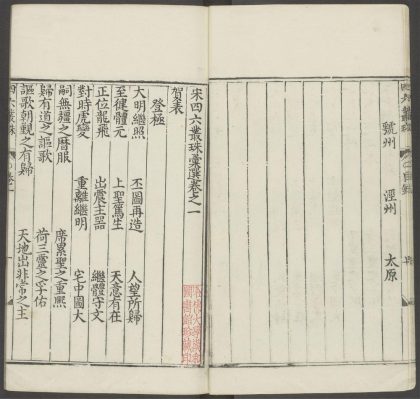 虢州　涇州　太原
宋四六叢珠彙選卷之一
賀表
登極
大明繼照　丕圖再造　人望所歸
至健體元　上聖篤生　天意有在
正位龍飛　出震主器　繼體守文
對時虎變　重離繼明　宅中圖大
嗣無疆之曆服　席累聖之重熙
歸有道之謳歌　荷三靈之孚佑
謳歌朝覲之有歸　天地出非常之主